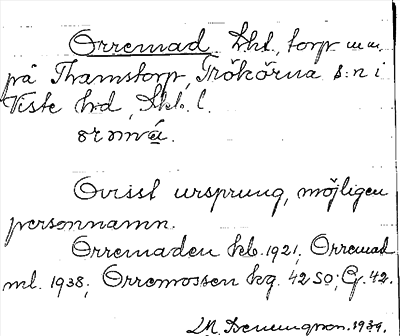 Orremad, lkl., torp m.m.
på Thamstorp, Trökörna s:n i
Viste hd, Skb. l.
ormá.
Ovisst ursprung, möjligen
personnamn.
Orremaden kb. 1921, Orremad
ml. 1938; Orremossen kg. 42 SO; G. 42.
1939.